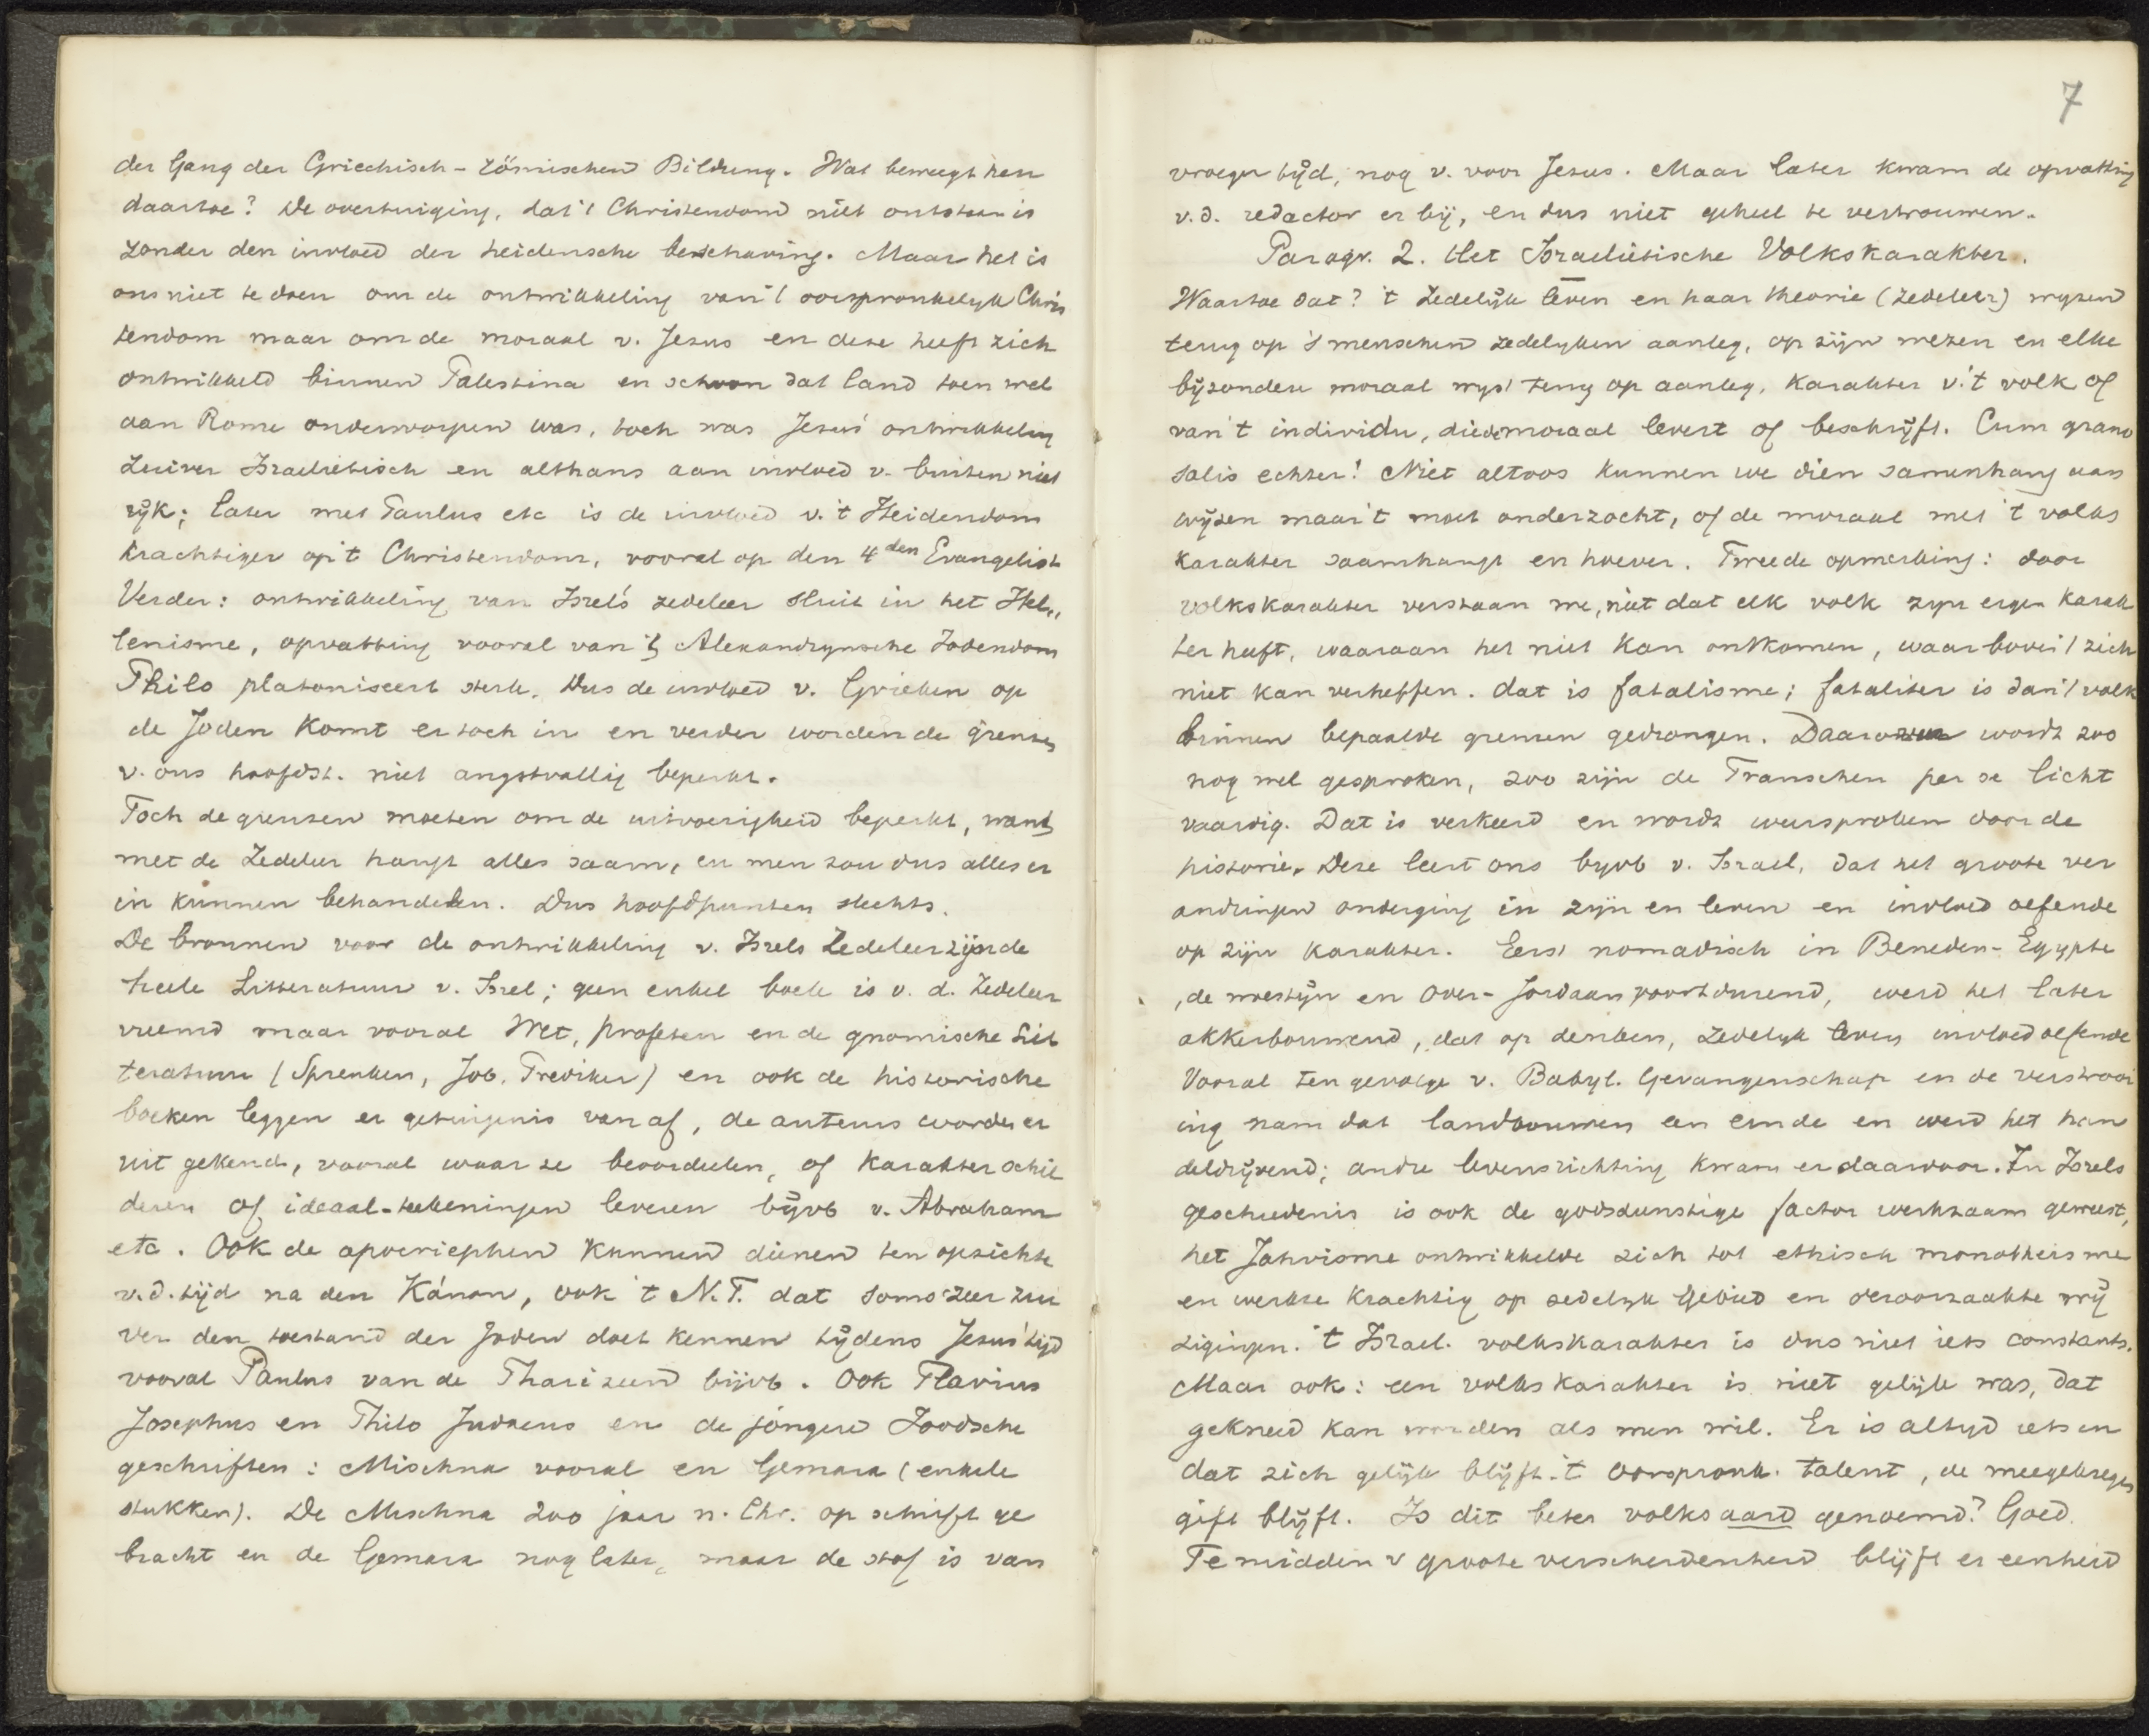 der Gang der Griechisch-römischen Bildung. Wat beweegt hen
daartoe? De overtuiging, dat 't Christendom niet ontstaan is
zonder den invloed der heidensche beschaving. Maar het is
ons niet te doen om de ontwikkeling van 't oorspronkelijk Chris
tendom maar om de moraal v. Jezus en deze heeft zich
ontwikkeld binnen Palestina en schoon dat land toen wel
aan Rome onderworpen was, toch was Jezus' ontwikkeling
zuiver Israelietisch en althans aan invloed v. buiten niet
rijk; later met Paulus etc is de invloed v. 't Heidendom
krachtiger op 't Christendom, vooral op den 4den Evangelist
Verder: ontwikkeling van Isrel's zedeleer sluit in het Hel„
lenisme, opvatting vooral van 't Alexandrynsche Jodendom
Philo platoniseert sterk. Dus de invloed v. Grieken op
de Joden komt er toch in en verder worden de grenzen
v. ons hoofdst. niet angstvallig beperkt.
Toch de grenzen moeten om de uitvoerigheid beperkt, want
met de Zedeleer hangt alles saam, en men zou dus alles er
in kunnen behandelen. Dus hoofdpunten slechts.
De bronnen voor de ontwikkeling v. Isrels Zedeleer zijn de
heele Litteratuur v. Isrel; geen enkel boek is v. d. Zedeleer
vreemd maar vooral Wet, profeten en de gnomische Lit
teratuur (Spreuken, Job, Prediker) en ook de historische
boeken leggen er getuigenis van af, de auteurs worden er
uit gekend, vooral waar ze beoordeelen, of karakter schil
deren of ideaal-teekeningen leveren bijvb v. Abraham
etc. Ook de apocriephen kunnen dienen ten opzichte
v.d. tijd na den Kánon, ook 't N.T. dat soms zeer zui
ver den toestand der Joden doet kennen tijdens Jezus' tijd
vooral Paulus van de Pharizeen bijvb. Ook Flavius
Josephus en Philo Judaeus en de jongere Joodsche
geschriften: Mischna vooral en Gemara (enkele
stukken). De Mischna 200 jaar n. Chr. op schrift ge
bracht en de Gemara nog later, maar de stof is van
7
vroeger tijd, nog v. voor Jezus. Maar later kwam de opvatting
v.d. redactor er bij, en dus niet geheel te vertrouwen.
Paragr. 2. Het Israelietische Volkskarakter.
Waartoe dat? 't Zedelijk leven en haar theorie (zedeleer) wyzen
terug op 's menschen zedelyken aanleg, op zijn wezen en elke
bijzondere moraal wyst terug op aanleg, karakter v. 't volk of
van 't individu, die de moraal levert of beschrijft. Cum grano
salis echter! Niet altoos kunnen we dien samenhang aan
wijzen maar 't moet onderzocht, of de moraal met 't volks
karakter saamhangt en hoever. Tweede opmerking: door
volkskarakter verstaan we, niet dat elk volk zyn eigen karak
ter heeft, waaraan het niet kan ontkomen, waarboven 't zich
niet kan verheffen. dat is fatalisme; fataliter is dan 't volk
binnen bepaalde grenzen gedrongen. Daarover wordt zoo
nog wel gesproken, zoo zijn de Franschen per se licht
vaardig. Dat is verkeerd en wordt weersproken door de
historie. Deze leert ons byvb v. Israel, dat het groote ver
andringen onderging in zijn en leven en invloed oefende
op zijn karakter. Eerst nomadisch in Beneden-Egypte
, de woestijn en Over-Jordaan voortdurend, werd het later
akkerbouwend, dat op denken, zedelyk leven invloed oefende
Vooral ten gevolge v. Babyl. Gevangenschap en de verstrooi
ing nam dat landbouwen een einde en werd het han
deldrijvend; andre levensrichting kwam er daarvoor. In Isrels
geschiedenis is ook de godsdienstige factor werkzaam geweest,
het Jahvisme ontwikkelde zich tot ethisch monotheisme
en werkte krachtig op zedelyk Gebied en veroorzaakte wij
zigingen. 't Israel. volkskarakter is dus niet iets constants.
Maar ook: een volks karakter is niet gelijk was, dat
gekneed kan worden als men wil. Er is altyd iets in
dat zich gelijk blijft. 't Oorspronk. talent, de meegekregen
gift blijft. Is dit beter volksaard genoemd? Goed.
Te midden v groote verscheidenheid blijft er eenheid